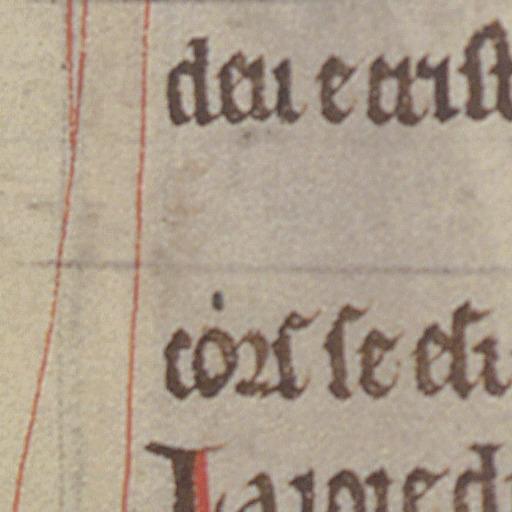 deu e crist
cors se esi
La ioie d